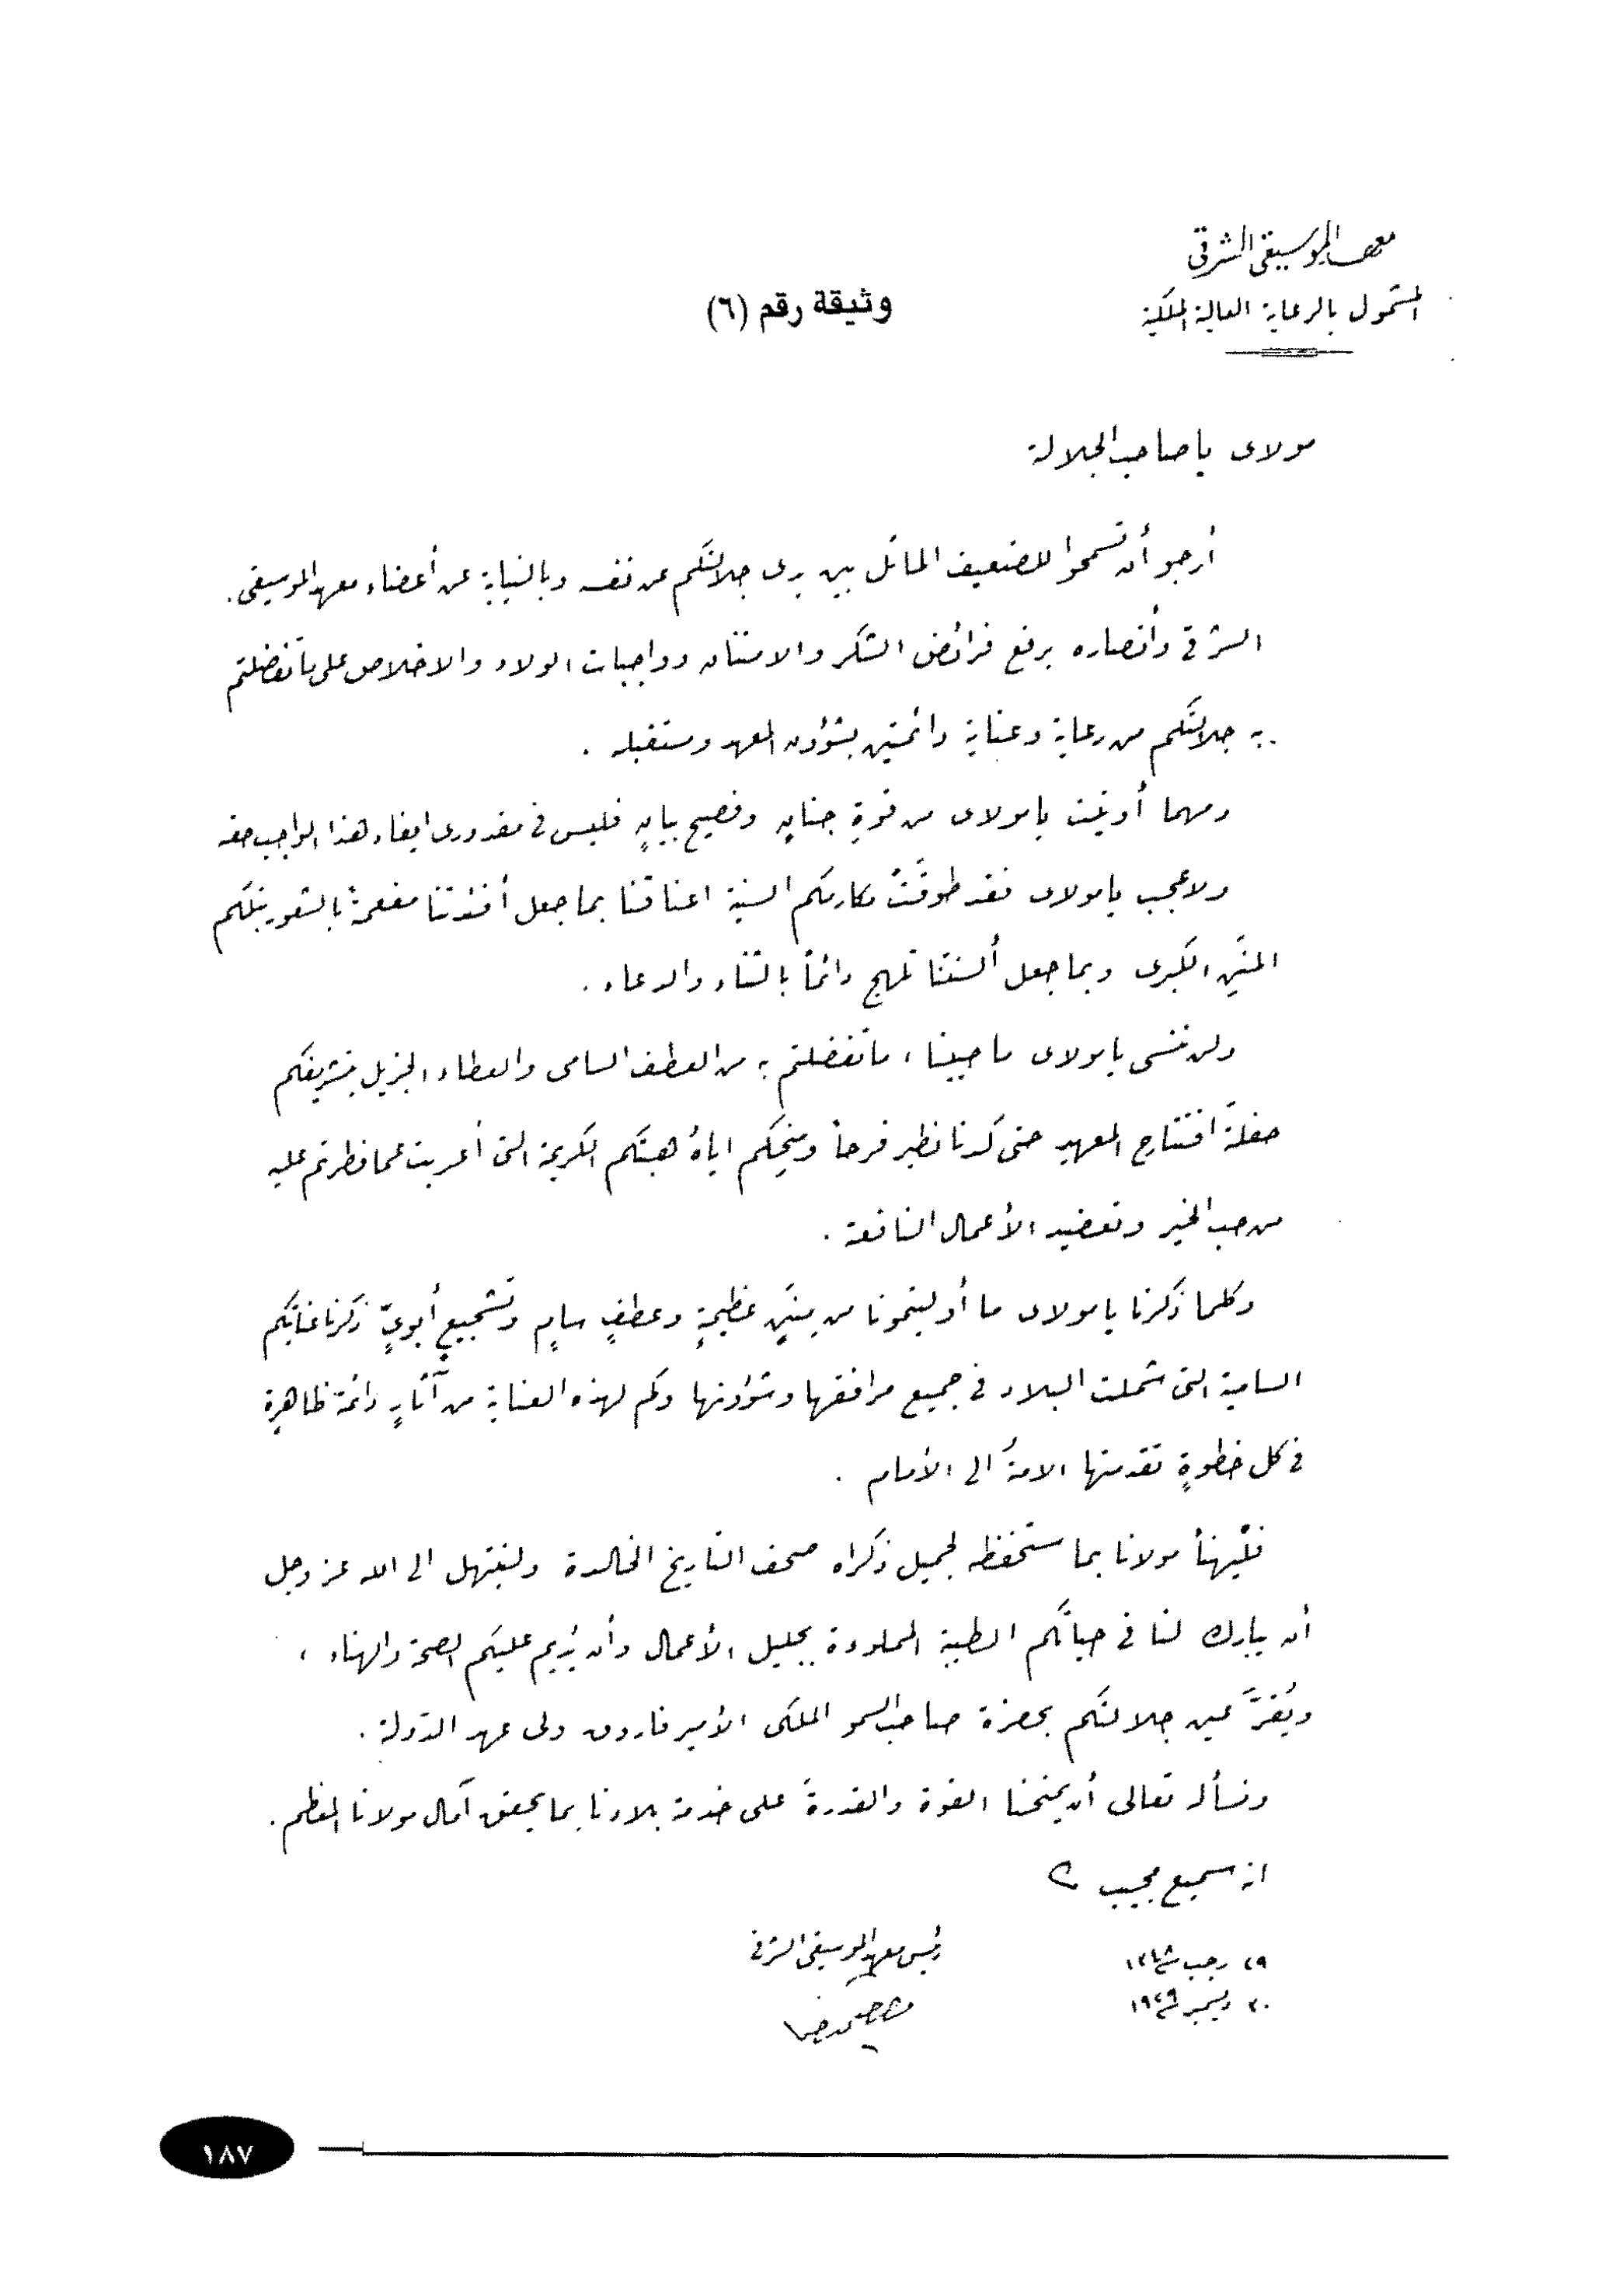 معهد الموسيقى الشرقى
المشمول بالرعاية العالية الملكية
وثيقة رقم (٦)
مولاى يا صاحب الجلالة
أرجو أن تسمحوا للضعيف الماثل بين يدى جلالتكم عن نفسه وبالنيابة عن أعضاء معهد الموسيقى
الشرقى وأنصاره برفع فرائض الشكر والامتنان وواجبات الولاء والاخلاص على ما تفضلتم
به جلالتكم من رعاية وعناية دائمتين بشؤون المعهد ومستقبله .
ومهما أوتيت يا مولاى من قوةِ جنانٍ وفصيح بيانٍ فليس فى مقدورى ايفاء هذا الواجب حقه
ولا عجب يا مولاى فقد طوقَتْ مكارمكم السنية اعناقنا بما جعل أفئدتنا مفعمةً بالشعور بتلكم
المنَنِ الكبرى وبما جعل ألسنتنا تلهج دائماً بالثناء والدعاء .
ولن ننسى يا مولاى ما حيينا ، ما تفضلتم به من العطف السامى والعطاء الجزيل بتشريفكم
حفلةَ افتتاح المعهد حتى كدنا نطير فرحاً ومنحِكم اياهُ هبتكم الكريمة التى أعربت عما فطرتم عليه
من حب الخير وتعضيد الأعمال النافعة .
وكلما ذكرنا يا مولاى ما أوليتمونا من مِنَنٍ عظيمةٍ وعطفٍ سامٍ وتشجيعٍ أبوىٍّ ذكرنا عنايتكم
السامية التى شملت البلاد فى جميع مرافقها وشؤونها وكم لهذه العناية من آثارٍ دائمة ظاهرةٍ
فى كل خطوةٍ تقدمتها الامةُ الى الأمام .
فليْهنأ مولانا بما ستحفظه لجميل ذكراه صحف التاريخ الخالدة ولنبتهل الى الله عز وجل
أن يبارك لنا فى حياتكم الطيبة المملوءة بجليل الأعمال وأن يُديم عليكم الصحة والهناء ،
ويُقرَّ عين جلالتكم بحضرة صاحب السمو الملكى الأمير فاروق ولى عهد الدولة .
ونسأله تعالى أن يمنحنا القوة والقدرةَ على خدمة بلادنا بما يحقق آمال مولانا المعظم .
انه سميع مجيب
رئيس معهد الموسيقى الشرقى
٢٩ رجب سنة ١٣٤٨
٣٠ ديسمبر سنة ١٩٢٩
مصطفى رضا
١٨٧